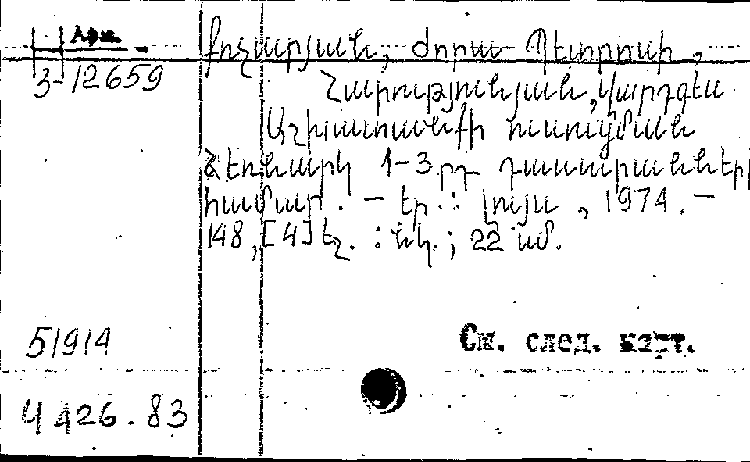 Арм.
3-12659
Քոչարյան, Ժորա Պետրոսի,
Հարությունյան, Վարդգես
Աշխատանքի ուսուցման
ձեռնարկ 1-3րդ դասարանների
համար. – Եր.: Լույս, 1974. –
148, [4] էջ. : նկ.; 22 սմ.
51914
См. след. карт.
4426.83